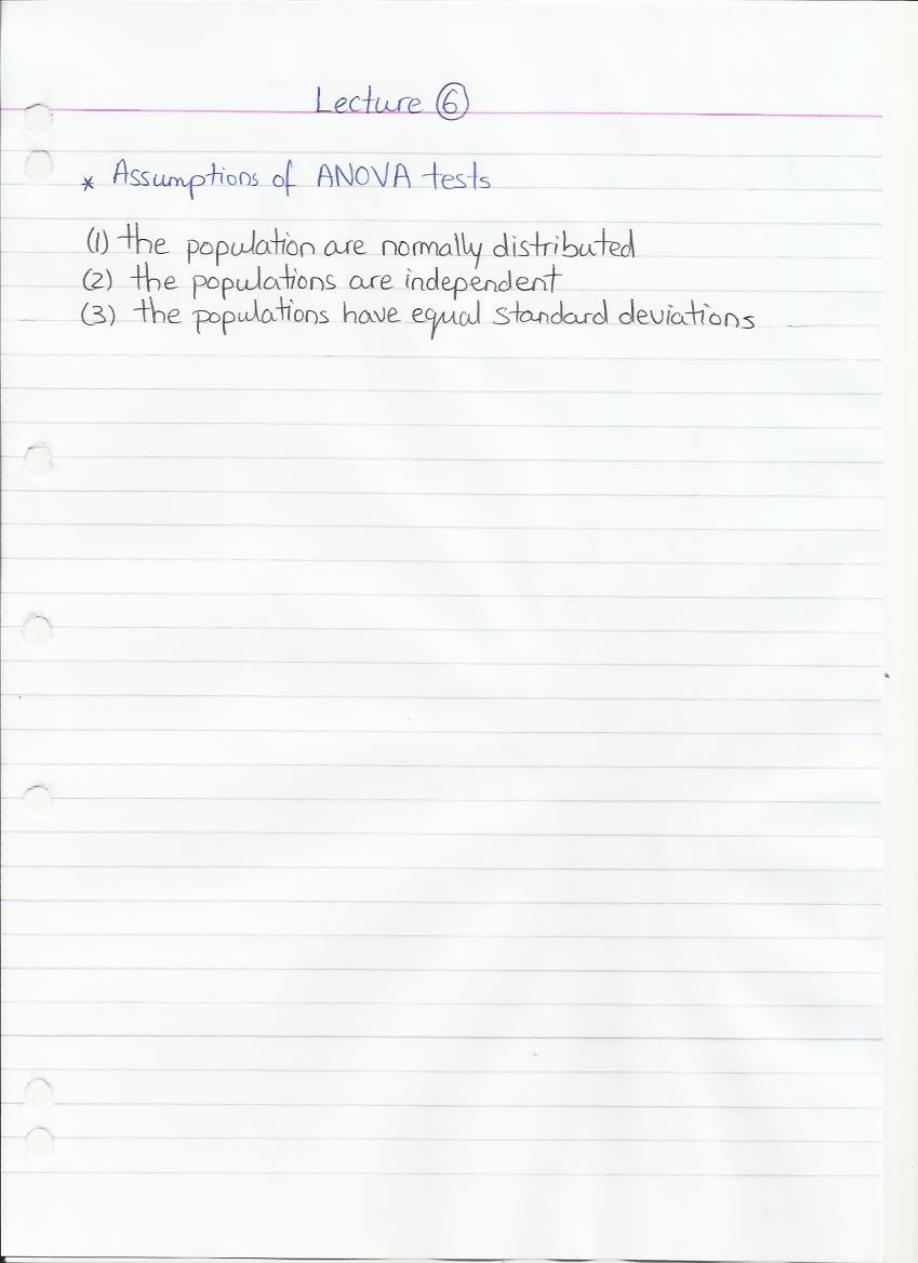 Lecture ⑥
* Assumptions of ANOVA tests
(1) the population are normally distributed
(2) the populations are independent
(3) the populations have equal standard deviations